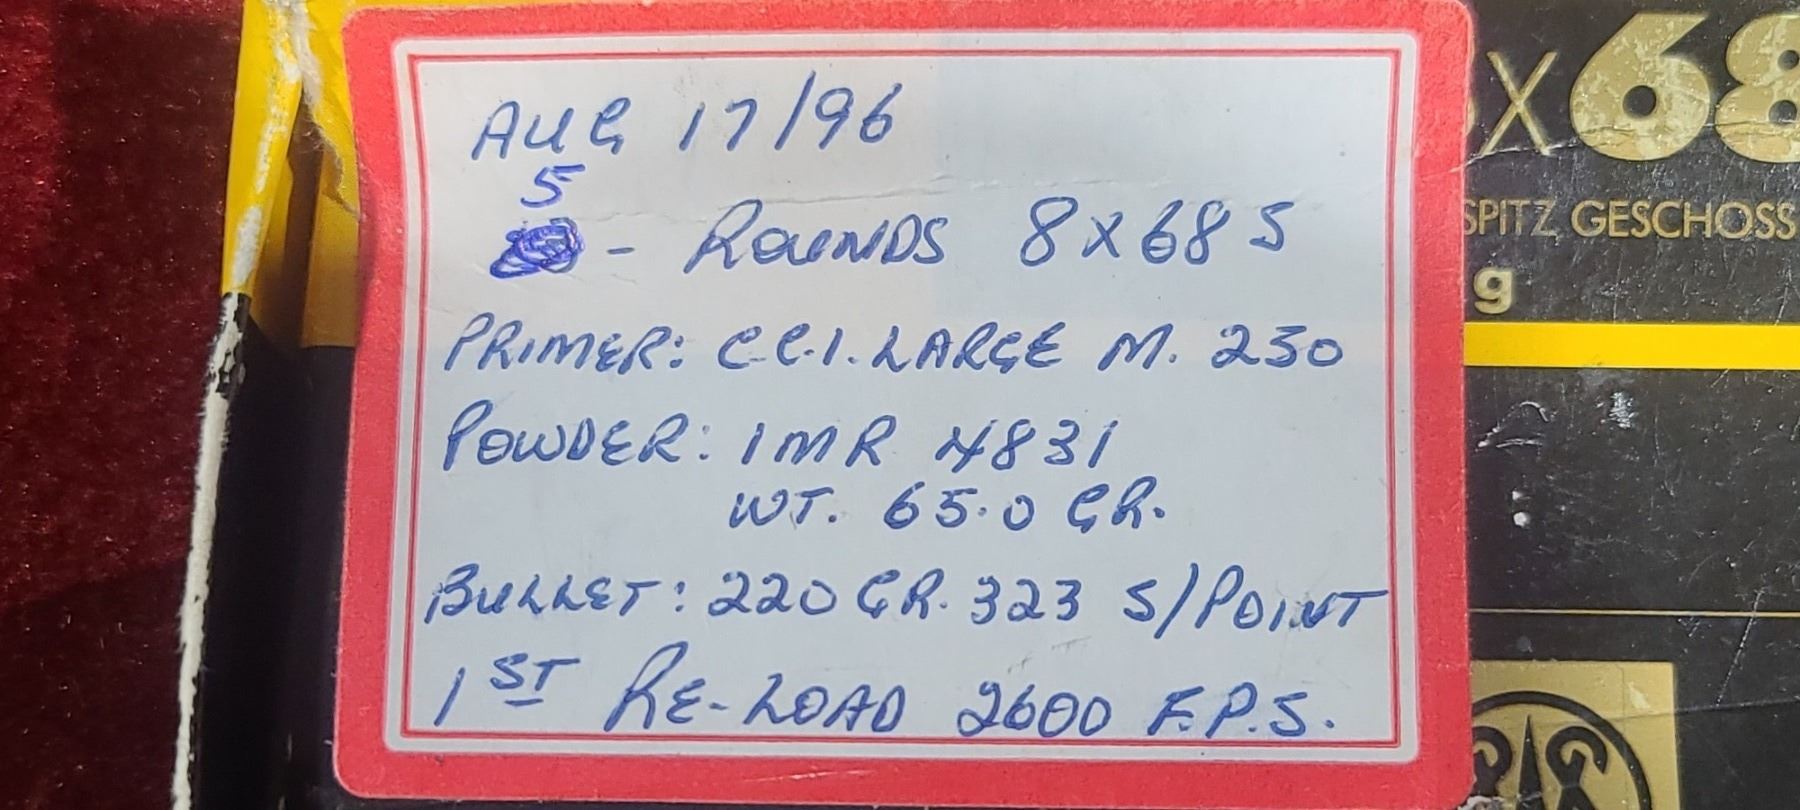 AUG 17/96
5
- ROUNDS 8X68 S
PRIMER: C.C.I. LARGE M. 250
POWDER: IMR 4831
WT. 65.0 GR.
BULLET: 220 GR. 323 S/POINT
1ST RE-LOAD 2600 F.P.S.
X68
SPITZ GESCHOSS
g